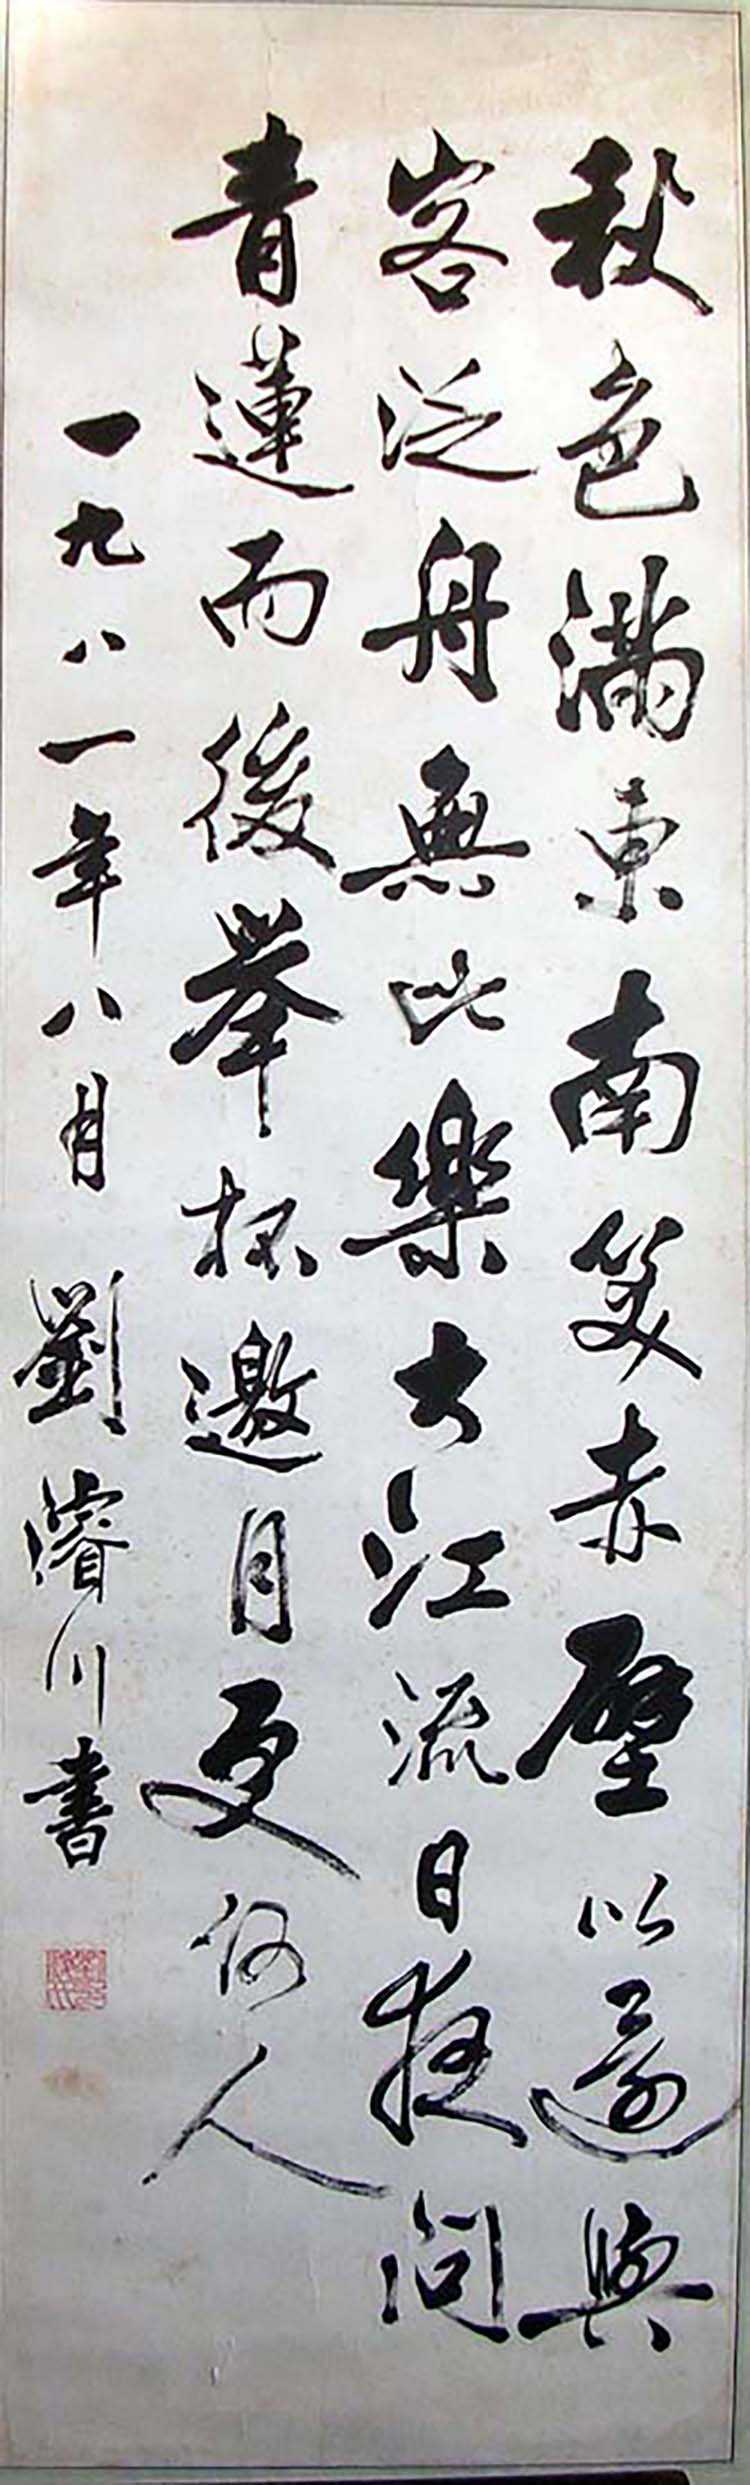 秋色滿東南笑赤壁以還與
客泛舟無此樂大江流日夜問
青蓮而後舉杯邀月更何人
一九八一年八月 劉濬川書